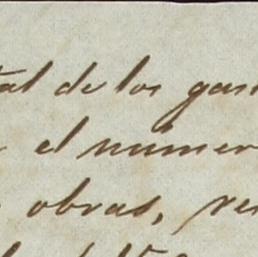 tal de los gast
el número
obras, re